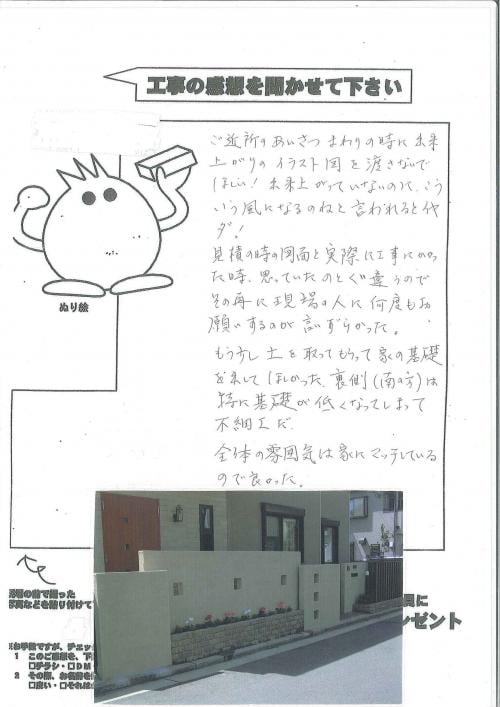 工事の感想を聞かせて下さい
ご近所のあいさつまわりの時に出来
上がりのイラスト図を渡さないで
ほしい！出来上がっていないのに、こう
いう風になるのねと言われるとイヤ
ダ！
見積の時の図面と実際に工事にかかっ
た時、思っていたのとく違うので
その再に現場の人に何度もお
願いするのが言いずらかった。
もう少し土を取ってもらって家の基礎
を出してほしかった。裏側(南の方)は
特に基礎が低くなってしまって
不細工だ。
全体の雰囲気は家にマッチしている
ので良かった。
ぬり絵
の前で撮った
写真などを貼り付けて
員に
レゼント
※お手数ですが、チェッ
1 このご感想を、下
□チラシ・□DM
2 その際、お名前を
□良い・□それは